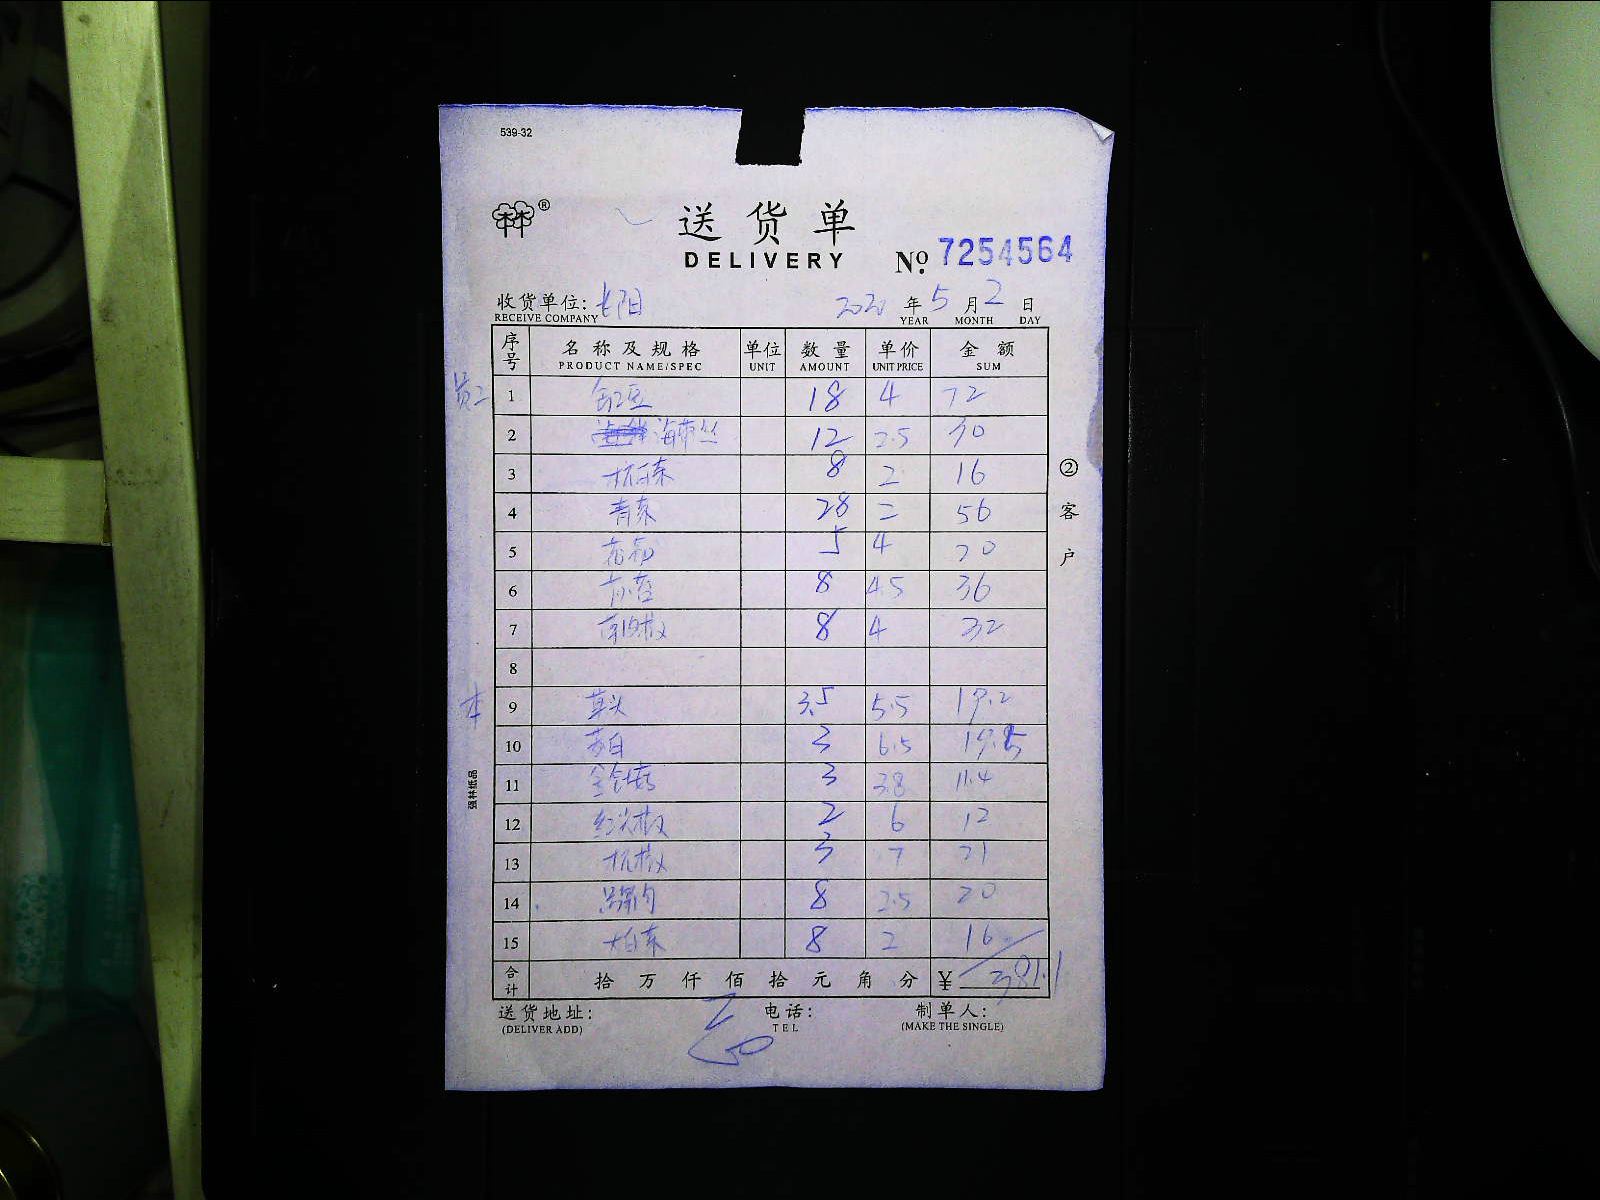 539-32
送货单
DELIVERY
No. 7254564
收货单位: 长阳 2020 年 5 月 2 日
RECEIVE COMPANY YEAR MONTH DAY
序号 名称及规格 单位 数量 单价 金额
PRODUCT NAME/SPEC UNIT AMOUNT UNIT PRICE SUM
1 18 4 72
2 海带丝 12 2.5 30
3 8 2 16
4 青菜 28 2 56
5 5 4 20
6 8 4.5 36
7 8 4 32
8
本 9 草头 3.5 5.5 19.2
10 茭白 3 6.5 19.5
11 金针菇 3 3.8 11.4
12 红尖椒 2 6 12
13 杭椒 3 7 21
14 8 2.5 20
15 大白菜 8 2 16
合计 拾 万 仟 佰 拾 元 角 分 ¥ 381.1
送货地址: 电话: 制单人:
(DELIVER ADD) TEL (MAKE THE SINGLE)
②客户
强林纸品